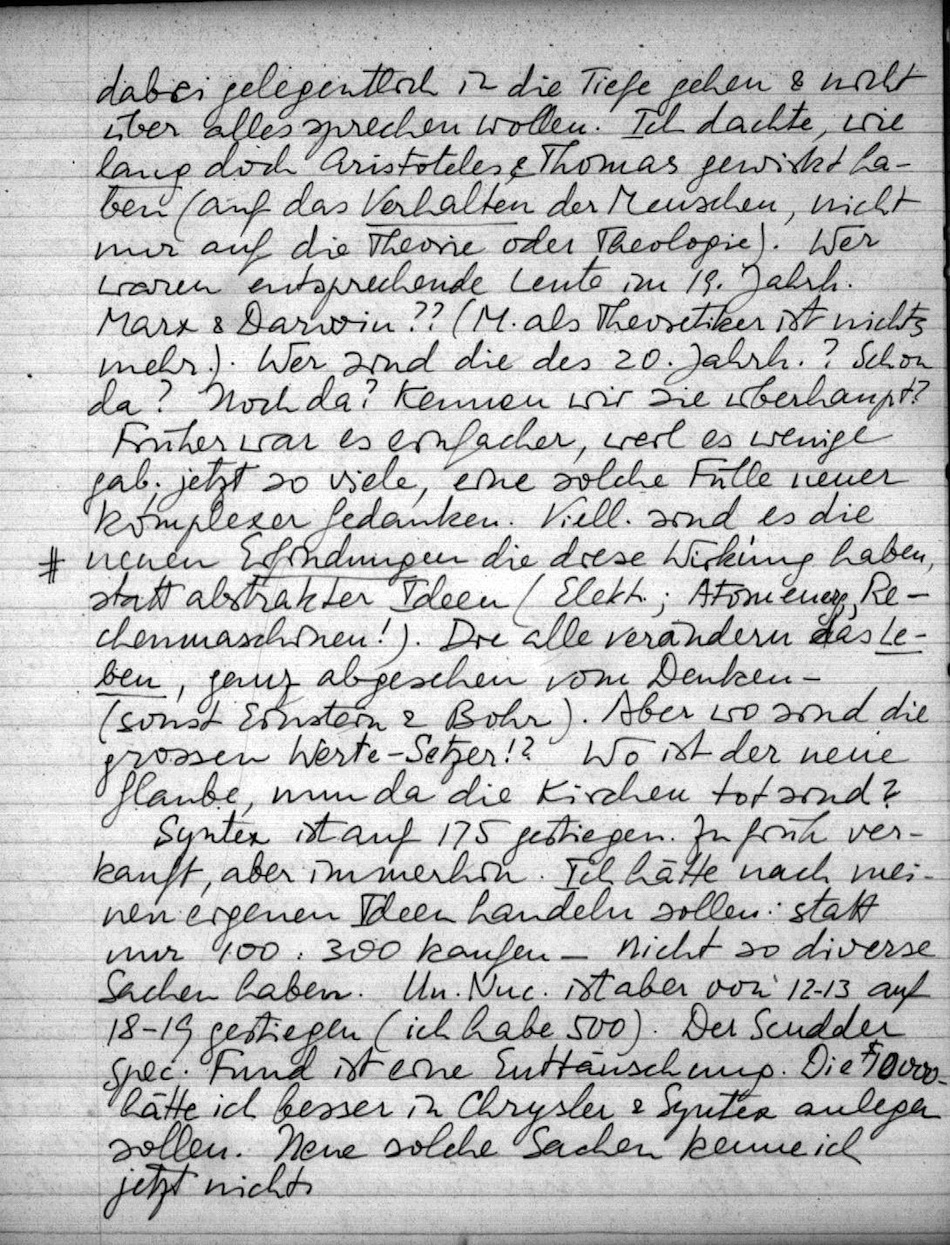 dabei gelegentlich in die Tiefe gehen & nicht
über alles sprechen wollen. Ich dachte, wie
lang doch Aristoteles & Thomas gewirkt ha-
ben (auf das Verhalten der Menschen, nicht
nur auf die Theorie oder Theologie). Wer
waren entsprechende Leute im 19. Jahrh.
Marx & Darwin?? (M. als Theoretiker ist nichts
mehr). Wer sind die des 20. Jahrh.? Schon
da? Noch da? Kennen wir sie überhaupt?
Früher war es einfacher, weil es wenige
gab. jetzt so viele, eine solche Fülle neuer
komplexer Gedanken. Viell. sind es die
# neuen Erfindungen die diese Wirkung haben,
statt abstrakter Ideen (Elekt.; Atomenerg, Re-
chenmaschinen!). Die alle verändern das Le-
ben, ganz abgesehen vom Denken –
(sonst Einstein & Bohr). Aber wo sind die
grossen Werte-Setzer!? Wo ist der neue
Glaube, nun da die Kirchen tot sind?
Syntex ist auf 175 gestiegen. Zu früh ver-
kauft, aber immerhin. Ich hätte nach mei-
nen eigenen Ideen handeln sollen: statt
nur 100 : 300 kaufen – nicht so diverse
Sachen haben. Un. Nuc. ist aber von 12-13 auf
18-19 gestiegen (ich habe 500). Der Scudder
Spec. Fund ist eine Enttäuschung. Die $10000-
hätte ich besser in Chrysler & Syntex anlegen
sollen. Neue solche Sachen kenne ich
jetzt nicht.